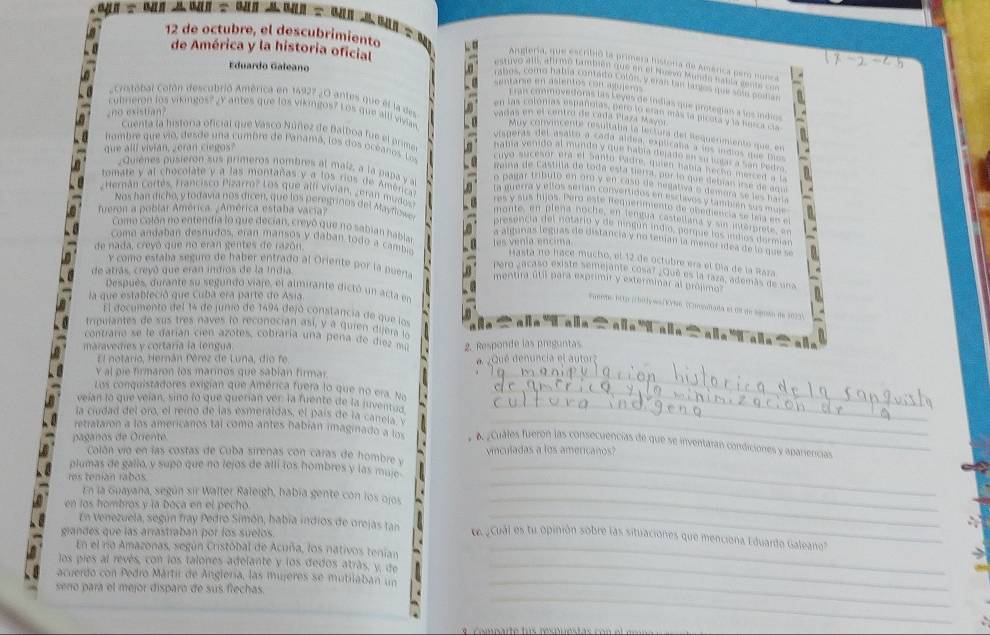 12 de octubre, el descubrimiento
de América y la historia oficial
Eduardo Galeano
¿Cristóbal Colón descubrió América en 1492? ¿O antes que él la des-
cubrieron los vikingos? ¿Y antes que los vikingos? Los que allí vivían,
¿no existían?
Cuenta la historia oficial que Vasco Núñez de Balboa fue el primer
hombre que vio, desde una cumbre de Panamá, los dos océanos. Los
que allí vivían, ¿eran ciegos?
¿Quiénes pusieron sus primeros nombres al maíz, a la papa y al
tomate y al chocolate y a las montañas y a los ríos de América?
¿Hernán Cortés, Francisco Pizarro? Los que allí vivían, ¿eran mudos?
Nos han dicho, y todavía nos dicen, que los peregrinos del Mayflower
fueron a poblar América. ¿América estaba vacía?
Como Colón no entendía lo que decían, creyó que no sabían hablar.
Como andaban desnudos, eran mansos y daban todo a cambio
de nada, creyó que no eran gentes de razón.
Y como estaba seguro de haber entrado al Oriente por la puerta
de atrás, creyó que eran indios de la India.
Después, durante su segundo viaje, el almirante dictó un acta en
la que estableció que Cuba era parte de Asia.
El documento del 14 de junio de 1494 dejó constancia de que los
tripulantes de sus tres naves lo reconocían así, y a quien dijera lo
contrario se le darían cien azotes, cobraría una pena de diez mil
maravedíes y cortaría la lengua.
El notario, Hernán Pérez de Luna, dio fe.
Y al pie firmaron los marinos que sabían firmar.
Los conquistadores exigían que América fuera lo que no era. No
veían lo que veían, sino lo que querían ver: la fuente de la juventud,
la ciudad del oro, el reino de las esmeraldas, el país de la canela. Y
retrataron a los americanos tal como antes habían imaginado a los
paganos de Oriente.
Colón vio en las costas de Cuba sirenas con caras de hombre y
plumas de gallo, y supo que no lejos de allí los hombres y las muje-
res tenían rabos.
En la Guayana, según sir Walter Raleigh, había gente con los ojos
en los hombros y la boca en el pecho.
En Venezuela, según fray Pedro Simón, había indios de orejas tan
grandes que las arrastraban por los suelos.
En el río Amazonas, según Cristóbal de Acuña, los nativos tenían
los pies al revés, con los talones adelante y los dedos atrás, y, de
acuerdo con Pedro Mártir de Anglería, las mujeres se mutilaban un
seno para el mejor disparo de sus flechas.
Anglería, que escribió la primera historia de América pero nunca
estuvo allí, afirmó también que en el Nuevo Mundo había gente con
rabos, como había contado Colón, y eran tan largos que sólo podían
sentarse en asientos con agujeros.
Eran conmovedoras las Leyes de Indias que protegían a los indios
en las colonias españolas, pero lo eran más la picota y la horca cla-
vadas en el centro de cada Plaza Mayor.
Muy convincente resultaba la lectura del Requerimiento que, en
vísperas del asalto a cada aldea, explicaba a los indios que Dios
había venido al mundo y que había dejado en su lugar a San Pedro,
cuyo sucesor era el Santo Padre, quien había hecho merced a la
reina de Castilla de toda esta tierra, por lo que debían irse de aquí
o pagar tributo en oro y en caso de negativa o demora se les haría
la guerra y ellos serían convertidos en esclavos y también sus muje-
res y sus hijos. Pero este Requerimiento de obediencia se leía en el
monte, en plena noche, en lengua castellana y sin intérprete, en
presencia del notario y de ningún indio, porque los indios dormían
a algunas leguas de distancia y no tenían la menor idea de lo que se
les venía encima.
Hasta no hace mucho, el 12 de octubre era el Día de la Raza.
Pero ¿acaso existe semejante cosa? ¿Qué es la raza, además de una
mentira útil para exprimir y exterminar al prójimo?
2. Responde las preguntas.
a. ¿Qué denuncia el autor?
la manipulación historica de la conquista
de america y la minimización de la
cultura indigena
b. ¿Cuáles fueron las consecuencias de que se inventaran condiciones y apariencias
vinculadas a los americanos?
c. ¿Cuál es tu opinión sobre las situaciones que menciona Eduardo Galeano?